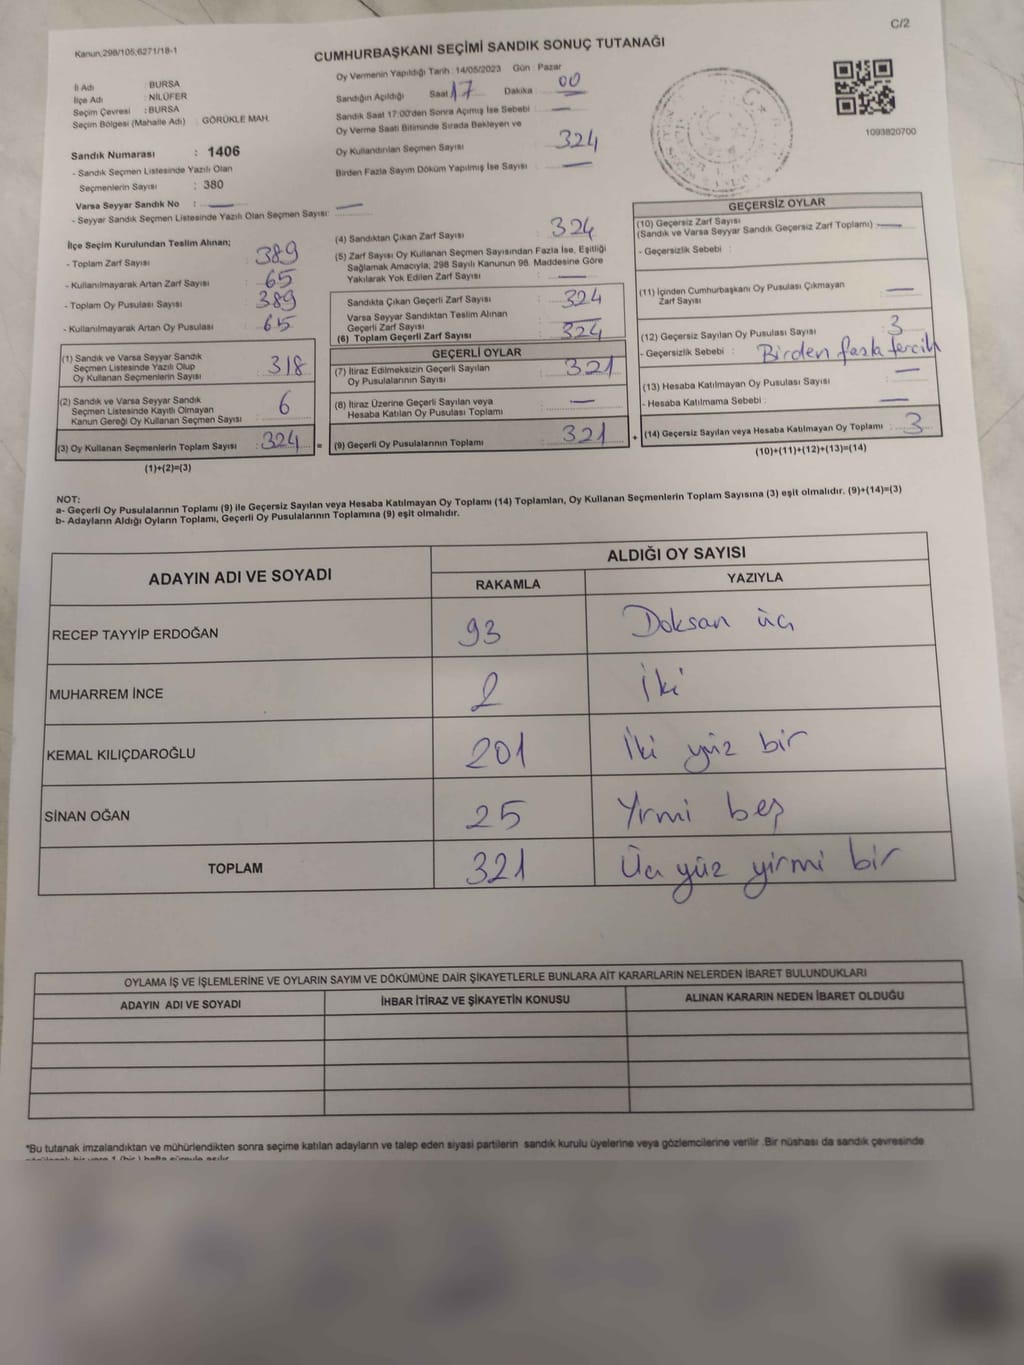 C/2
Kanun,298/105;6271/18-1
CUMHURBAŞKANI SEÇİMİ SANDIK SONUÇ TUTANAĞI
İl Adı : BURSA
İlçe Adı : NİLÜFER
Seçim Çevresi : BURSA
Seçim Bölgesi (Mahalle Adı) : GÖRÜKLE MAH.
Sandık Numarası : 1406
- Sandık Seçmen Listesinde Yazılı Olan
Seçmenlerin Sayısı : 380
Varsa Seyyar Sandık No : —
- Seyyar Sandık Seçmen Listesinde Yazılı Olan Seçmen Sayısı: —
Oy Vermenin Yapıldığı Tarih : 14/05/2023 Gün : Pazar
Sandığın Açıldığı Saat 17 Dakika 00
Sandık Saat 17:00'den Sonra Açmış İse Sebebi : —
Oy Verme Saati Bitiminde Sırada Bekleyen ve
Oy Kullandırılan Seçmen Sayısı : 324
Birden Fazla Sayım Döküm Yapılmış İse Sayısı : —
1093820700
İlçe Seçim Kurulundan Teslim Alınan;
- Toplam Zarf Sayısı : 389
- Kullanılmayarak Artan Zarf Sayısı : 65
- Toplam Oy Pusulası Sayısı : 389
- Kullanılmayarak Artan Oy Pusulası : 65
(1) Sandık ve Varsa Seyyar Sandık
Seçmen Listesinde Yazılı Olup
Oy Kullanan Seçmenlerin Sayısı : 318
(2) Sandık ve Varsa Seyyar Sandık
Seçmen Listesinde Kayıtlı Olmayan
Kanun Gereği Oy Kullanan Seçmen Sayısı : 6
(3) Oy Kullanan Seçmenlerin Toplam Sayısı : 324 =
(1)+(2)=(3)
(4) Sandıktan Çıkan Zarf Sayısı : 324
(5) Zarf Sayısı Oy Kullanan Seçmen Sayısından Fazla İse, Eşitliği
Sağlamak Amacıyla; 298 Sayılı Kanunun 98. Maddesine Göre
Yakılarak Yok Edilen Zarf Sayısı : —
Sandıkta Çıkan Geçerli Zarf Sayısı : 324
Varsa Seyyar Sandıktan Teslim Alınan
Geçerli Zarf Sayısı : —
(6) Toplam Geçerli Zarf Sayısı : 324
GEÇERLİ OYLAR
(7) İtiraz Edilmeksizin Geçerli Sayılan
Oy Pusulalarının Sayısı : 321
(8) İtiraz Üzerine Geçerli Sayılan veya
Hesaba Katılan Oy Pusulası Toplamı : —
(9) Geçerli Oy Pusulalarının Toplamı : 321 +
GEÇERSİZ OYLAR
(10) Geçersiz Zarf Sayısı
(Sandık ve Varsa Seyyar Sandık Geçersiz Zarf Toplamı) —
- Geçersizlik Sebebi :
(11) İçinden Cumhurbaşkanı Oy Pusulası Çıkmayan
Zarf Sayısı : —
(12) Geçersiz Sayılan Oy Pusulası Sayısı : 3
- Geçersizlik Sebebi : Birden fazla tercih
(13) Hesaba Katılmayan Oy Pusulası Sayısı : —
- Hesaba Katılmama Sebebi : —
(14) Geçersiz Sayılan veya Hesaba Katılmayan Oy Toplamı : 3
(10)+(11)+(12)+(13)=(14)
NOT:
a- Geçerli Oy Pusulalarının Toplamı (9) ile Geçersiz Sayılan veya Hesaba Katılmayan Oy Toplamı (14) Toplamları, Oy Kullanan Seçmenlerin Toplam Sayısına (3) eşit olmalıdır. (9)+(14)=(3)
b- Adayların Aldığı Oyların Toplamı, Geçerli Oy Pusulalarının Toplamına (9) eşit olmalıdır.
ADAYIN ADI VE SOYADI
ALDIĞI OY SAYISI
RAKAMLA YAZIYLA
RECEP TAYYİP ERDOĞAN 93 Doksan üç
MUHARREM İNCE 2 İki
KEMAL KILIÇDAROĞLU 201 İki yüz bir
SİNAN OĞAN 25 Yrmi beş
TOPLAM 321 Üç yüz yirmi bir
OYLAMA İŞ VE İŞLEMLERİNE VE OYLARIN SAYIM VE DÖKÜMÜNE DAİR ŞİKAYETLERLE BUNLARA AİT KARARLARIN NELERDEN İBARET BULUNDUKLARI
ADAYIN ADI VE SOYADI İHBAR İTİRAZ VE ŞİKAYETİN KONUSU ALINAN KARARIN NEDEN İBARET OLDUĞU
*Bu tutanak imzalandıktan ve mühürlendikten sonra seçime katılan adayların ve talep eden siyasi partilerin sandık kurulu üyelerine veya gözlemcilerine verilir .Bir nüshası da sandık çevresinde